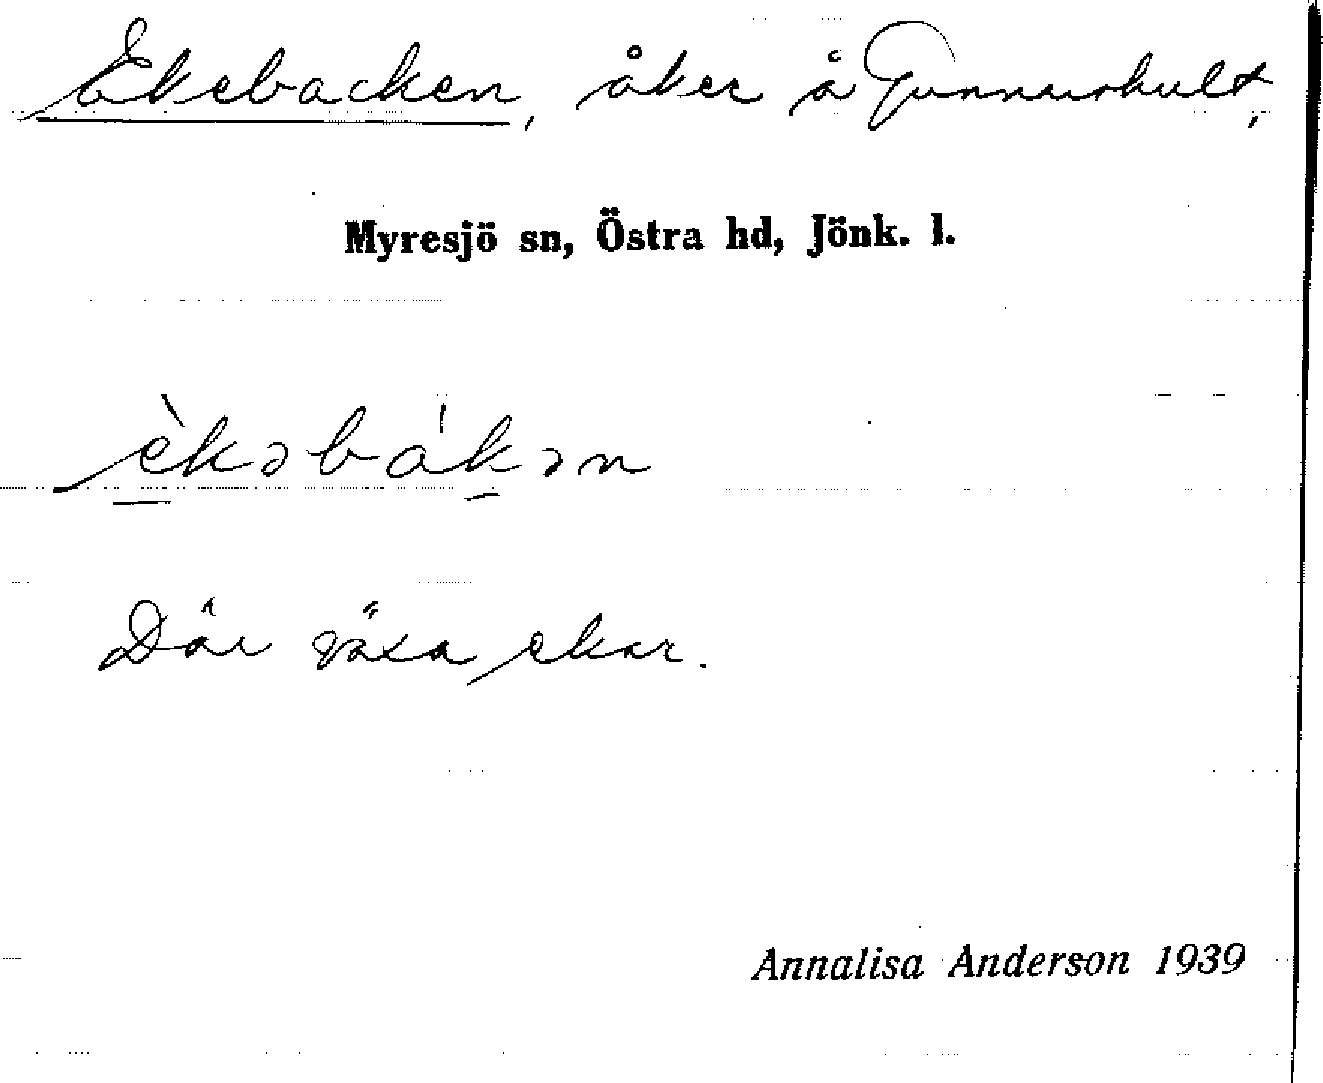 Ekebacken, åker å Gunnarshult,
Myresjö sn, Östra hd, Jönk. l.
èkəbákən
Där växa ekar.
Annalisa Anderson 1939